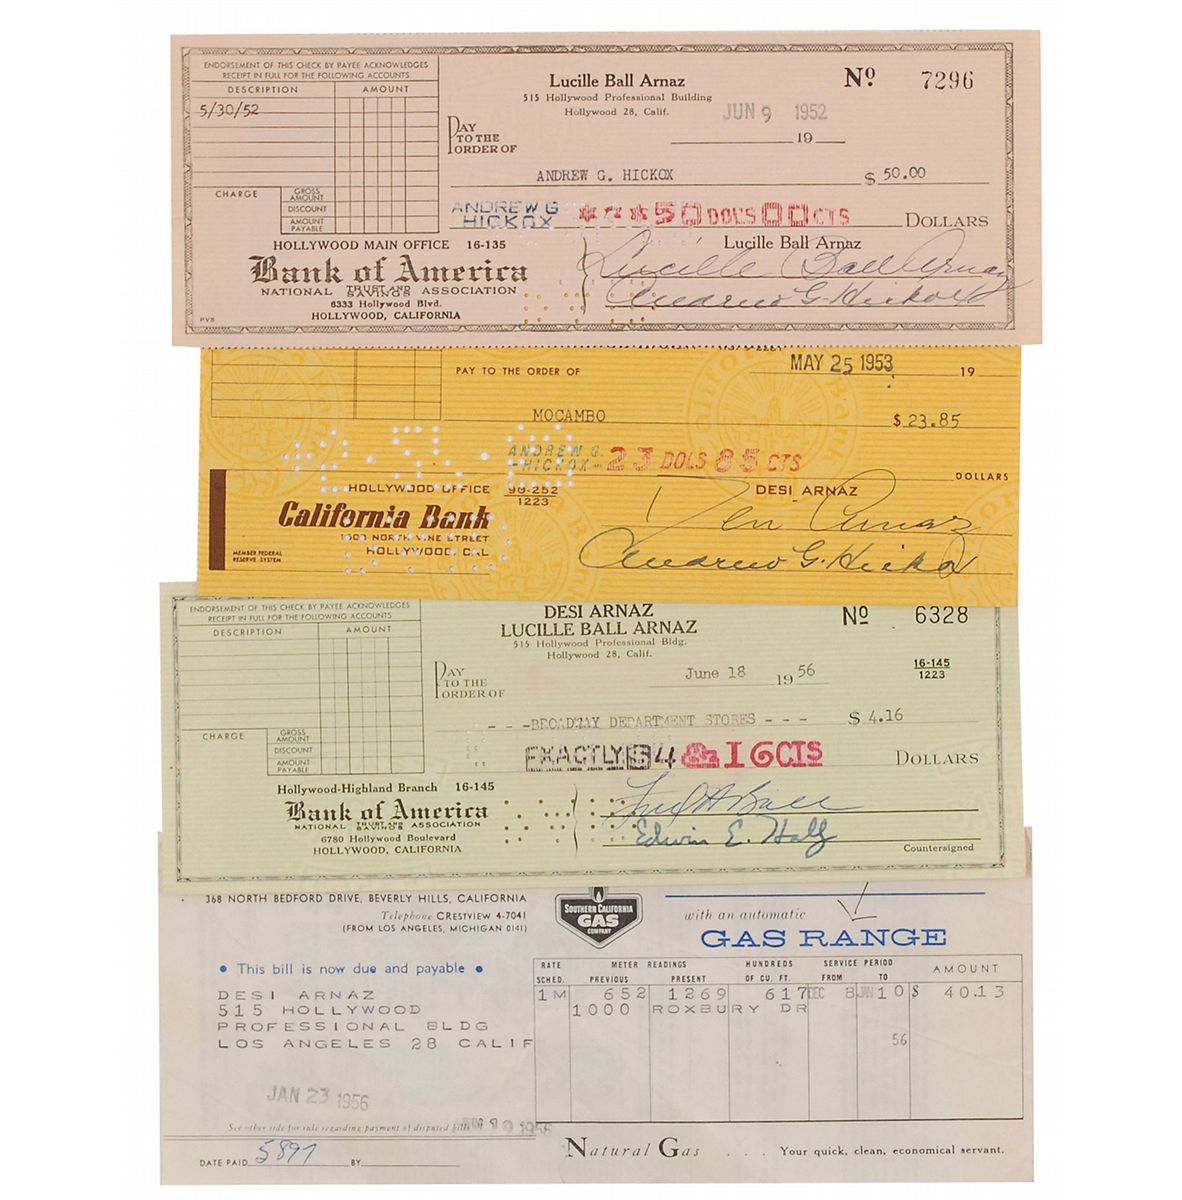 ENDORSEMENT OF THIS CHECK BY PAYEE ACKNOWLEDGES
RECEIPT IN FULL FOR THE FOLLOWING ACCOUNTS
DESCRIPTION AMOUNT
5/30/52
CHARGE
GROSS AMOUNT
DISCOUNT
AMOUNT PAYABLE
Lucille Ball Arnaz
515 Hollywood Professional Building
Hollywood 28, Calif.
Nº 7296
JUN 9 1952
19
PAY TO THE ORDER OF
ANDREW G. HICKOX $ 50.00
ANDREW G HICKOX ***50 DOLS 00 CTS DOLLARS
HOLLYWOOD MAIN OFFICE 16-135
Bank of America
NATIONAL TRUST AND SAVINGS ASSOCIATION
6333 Hollywood Blvd.
HOLLYWOOD, CALIFORNIA
PVS
Lucille Ball Arnaz
Lucille Ball Arnaz
Andrew G. Hickox
PAY TO THE ORDER OF
MAY 25 1953 19
MOCAMBO $ 23.85
ANDREW G. HICKOX 23 DOLS 85 CTS
DOLLARS
HOLLYWOOD OFFICE 90-252
1223
California Bank
NORTH VINE STREET
HOLLYWOOD, CAL
MEMBER FEDERAL
RESERVE SYSTEM
DESI ARNAZ
Desi Arnaz
Andrew G. Hickox
ENDORSEMENT OF THIS CHECK BY PAYEE ACKNOWLEDGES
RECEIPT IN FULL FOR THE FOLLOWING ACCOUNTS
DESCRIPTION AMOUNT
CHARGE
GROSS AMOUNT
DISCOUNT
AMOUNT PAYABLE
DESI ARNAZ
LUCILLE BALL ARNAZ
515 Hollywood Professional Bldg.
Hollywood 28, Calif.
Nº 6328
16-145
1223
PAY TO THE ORDER OF
June 18 19 56
- - -BROADWAY DEPARTMENT STORES - - - $ 4.16
EXACTLY $4 & 16 CTS DOLLARS
Hollywood-Highland Branch 16-145
Bank of America
NATIONAL TRUST AND SAVINGS ASSOCIATION
6780 Hollywood Boulevard
HOLLYWOOD, CALIFORNIA
Fred H Ball
Edwin E. Holly
Countersigned
368 NORTH BEDFORD DRIVE, BEVERLY HILLS, CALIFORNIA
Telephone CRestview 4-7041
(FROM LOS ANGELES, MICHIGAN 0141)
SOUTHERN CALIFORNIA
GAS
COMPANY
with an automatic
GAS RANGE
• This bill is now due and payable •
DESI ARNAZ
515 HOLLYWOOD
PROFESSIONAL BLDG
LOS ANGELES 28 CALIF
RATE SCHED. METER READINGS PREVIOUS PRESENT HUNDREDS OF CU. FT. SERVICE PERIOD FROM TO AMOUNT
1M 652 1269 617 DEC 8 JAN 10 $ 40.13
1000 ROXBURY DR
56
JAN 23 1956
See other side for rule regarding payment of disputed bills
DATE PAID 5897 BY
Natural Gas . . . Your quick, clean, economical servant.